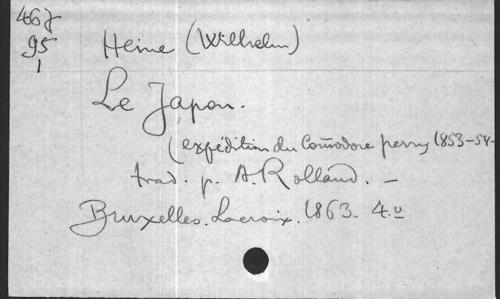 467
95
1
Heine (Wilhelm)
Le Japon.
(expédition du Com̄odore perry 1853-54-
trad. p. A. Rolland. —
Bruxelles. Lacroix. 1863. 4.º